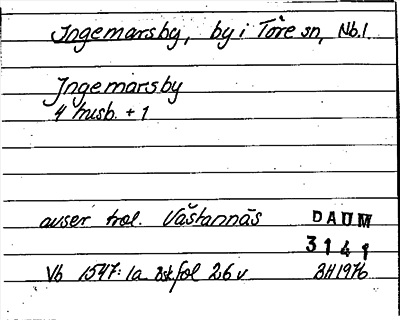 Ingemarsby, by i Töre sn, Nb.l.
Ingemarsby
4 husb. + 1
avser trol. Västannäs
DAUM
3141
Vb 1547:1a bskfol 26 v BH1976